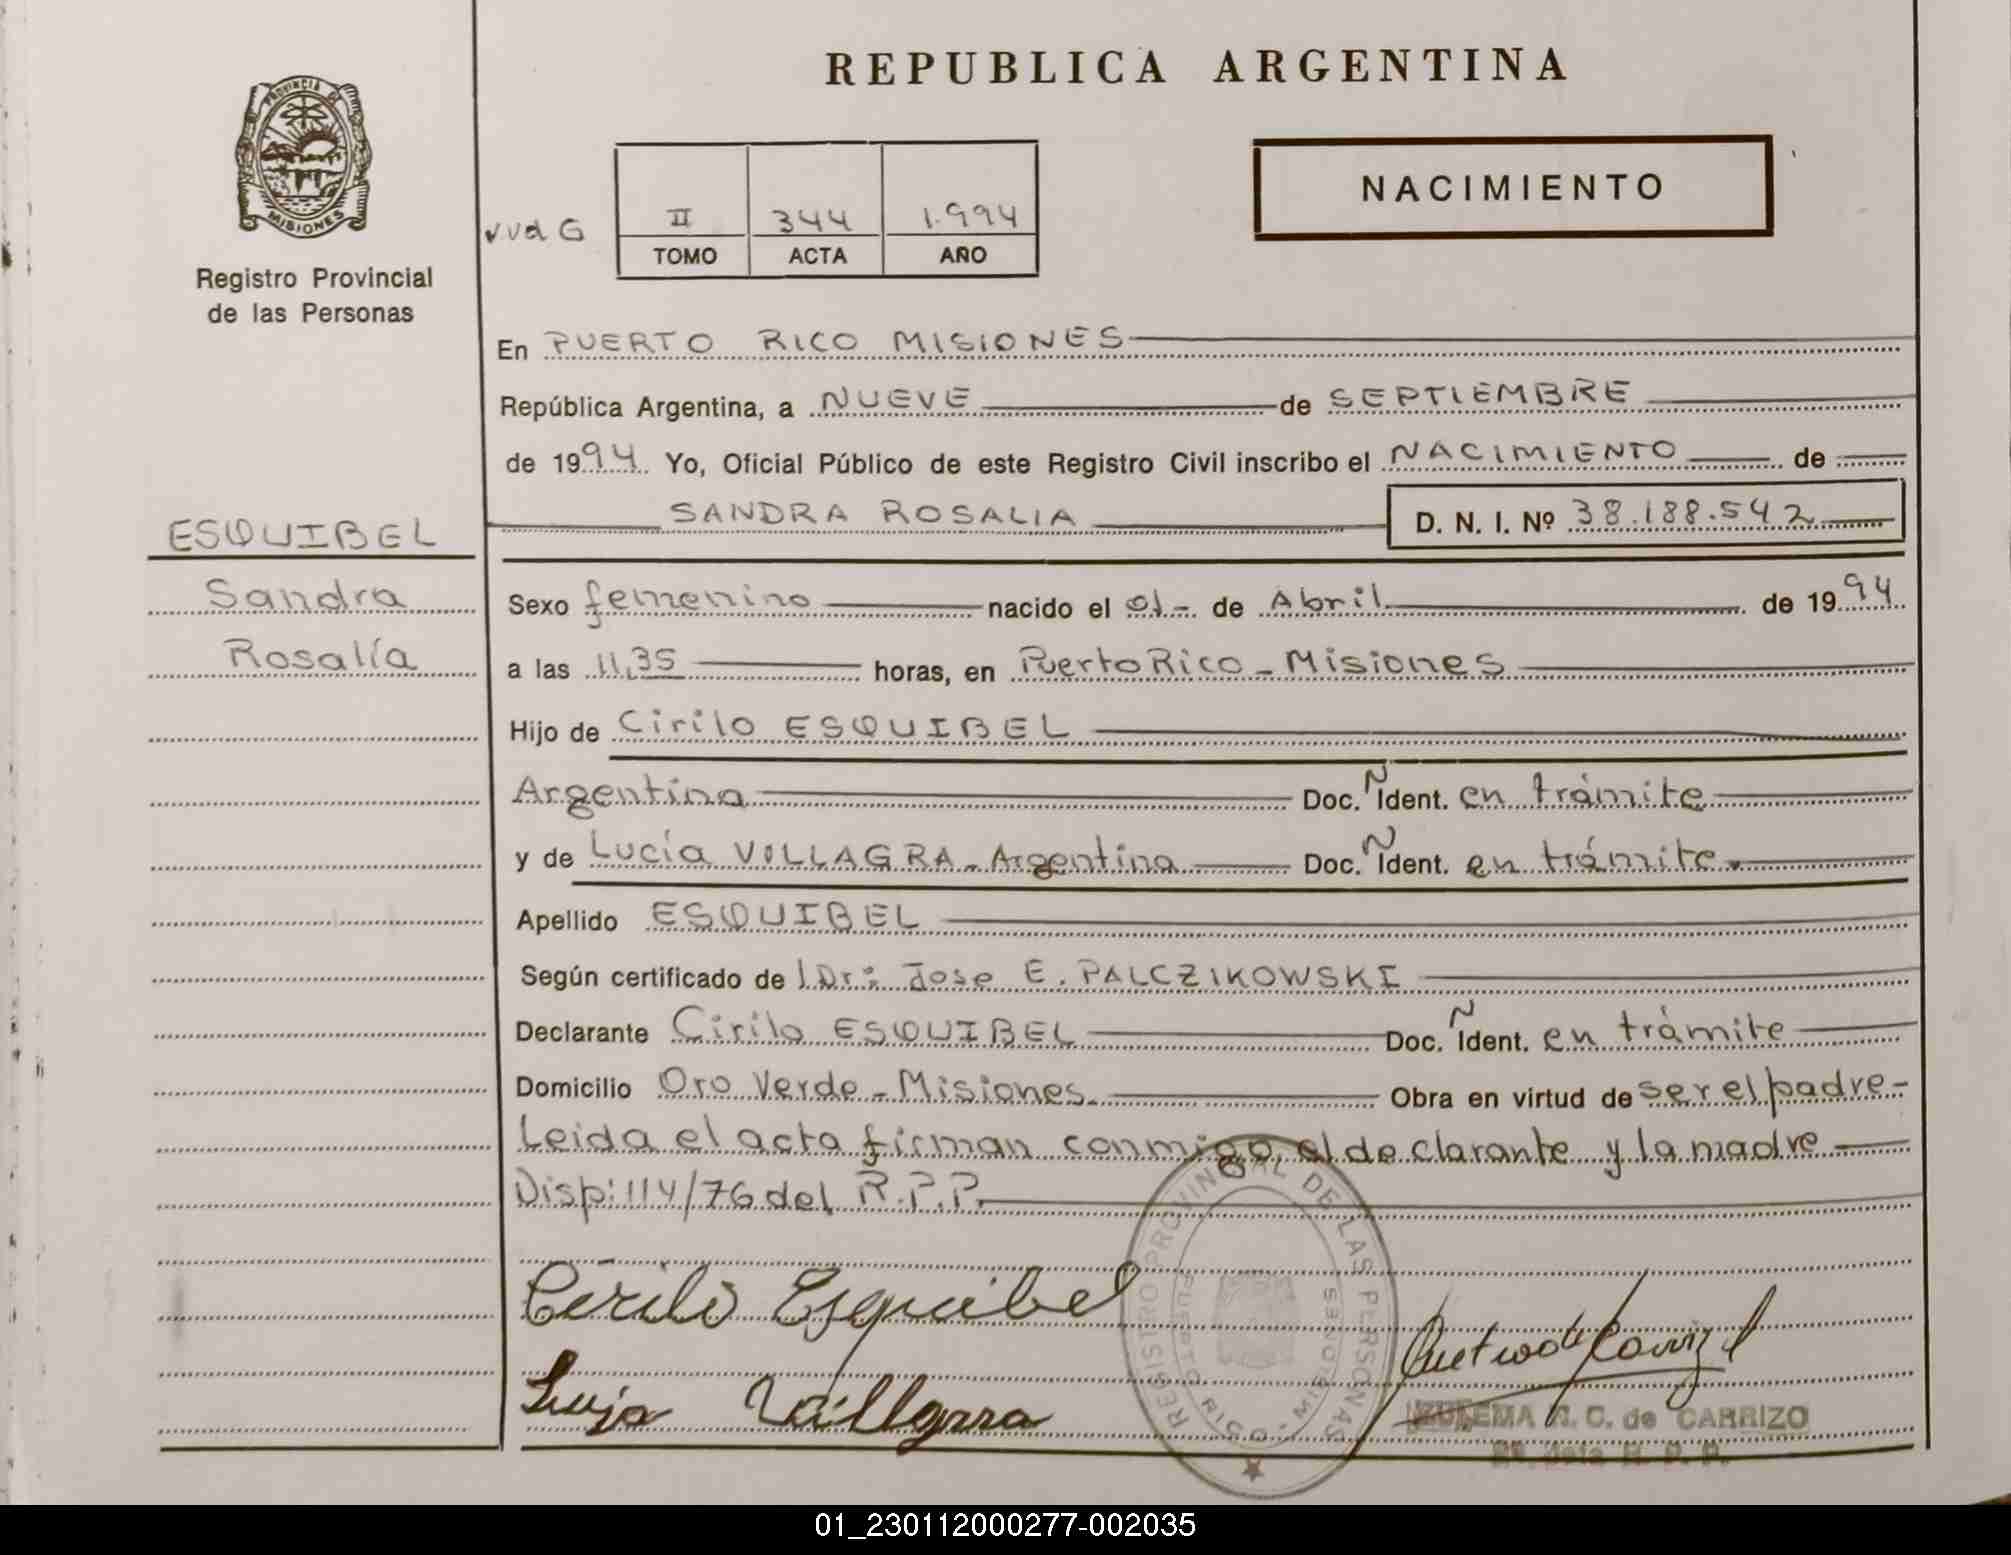 REPUBLICA ARGENTINA
PROVINCIA DE
MISIONES
Registro Provincial
de las Personas
NACIMIENTO
II 344 1.994
TOMO ACTA AÑO
En PUERTO RICO MISIONES
República Argentina, a NUEVE de SEPTIEMBRE
de 1994 Yo, Oficial Público de este Registro Civil inscribo el NACIMIENTO de
SANDRA ROSALIA D. N. I. Nº 38.188.542
ESQUIBEL
Sandra
Rosalía
Sexo femenino nacido el 01- de Abril de 1994
a las 11,35 horas, en Puerto Rico - Misiones
Hijo de Cirilo ESQUIBEL
Argentina Doc. Ñ Ident. en trámite
y de Lucía VILLAGRA - Argentina Doc. Ñ Ident. en trámite
Apellido ESQUIBEL
Según certificado de l Dr: Jose E. PALCZIKOWSKI
Declarante Cirilo ESQUIBEL Doc. Ñ Ident. en trámite
Domicilio Oro Verde - Misiones Obra en virtud de ser el padre-
Leida el acta firman conmigo el declarante y la madre
Disp: 114/76 del R.P.P.
REGISTRO PROVINCIAL DE LAS PERSONAS
PUERTO RICO - MISIONES
Cirilo Esquibel
ZULEMA C. de CARRIZO
01_230112000277-002035